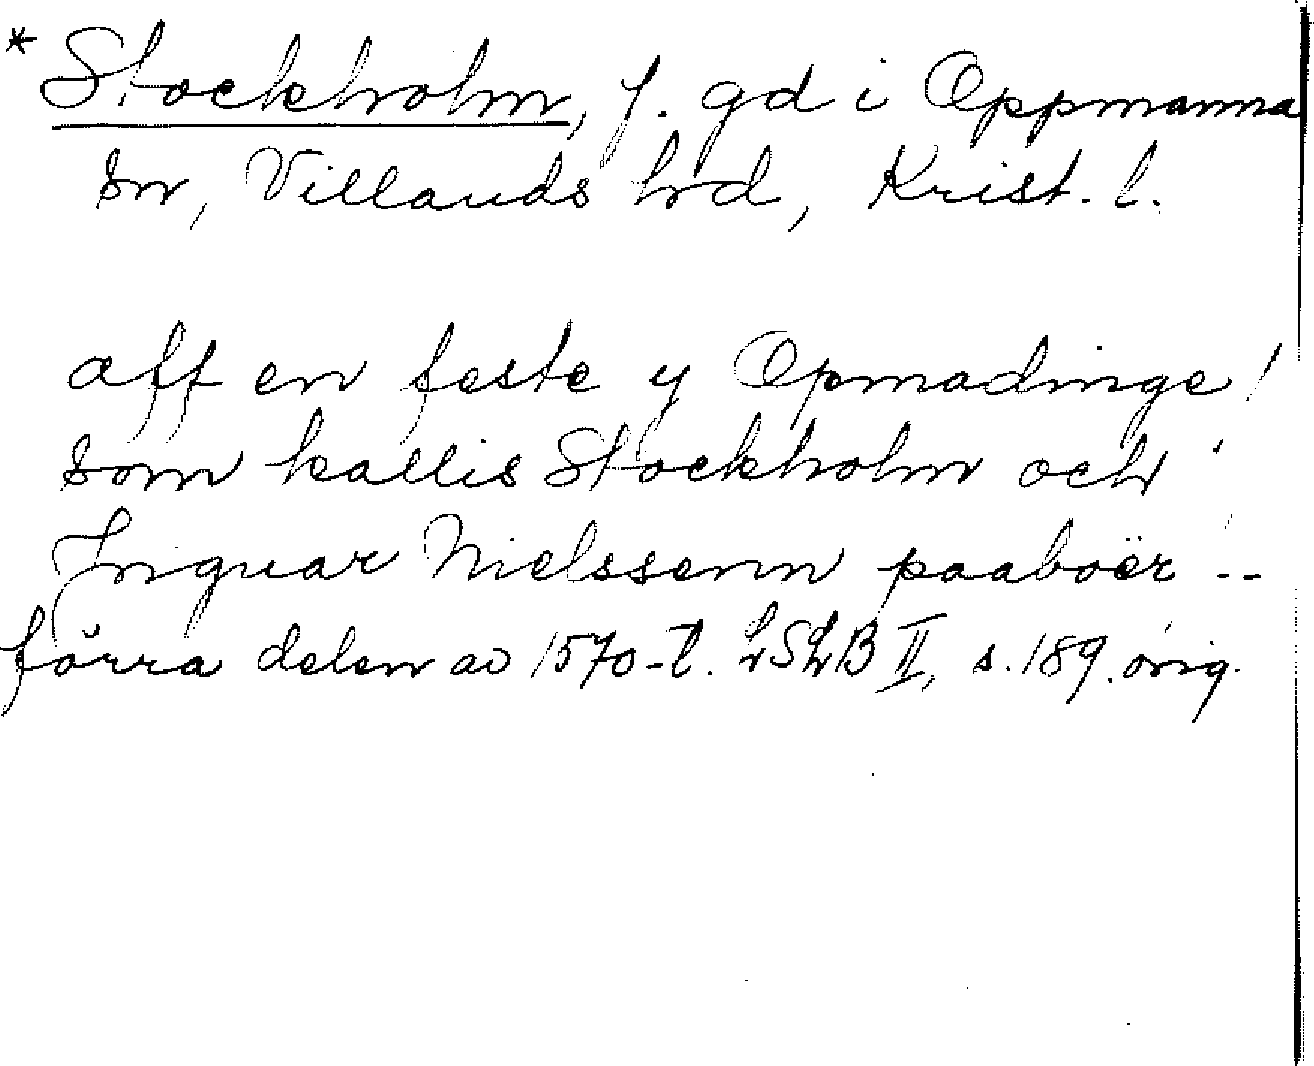 *Stockholm, f. gd i Oppmanna
sn, Villands hd, Krist. l.
aff en feste y Opmadinge
som kallis Stockholm och
Inguar Nielssenn paaboër --
förra delen av 1570-t. LSLB II, s. 189. orig.